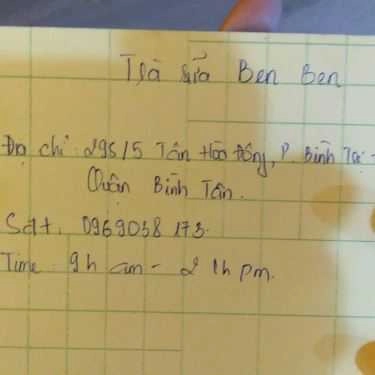 Trà sữa Ben Ben
Địa chỉ: 295/5 Tân Hòa Đông, P Bình Trị -
Quận Bình Tân.
Sđt: 0969038 173.
Time 9h am - 21h pm.